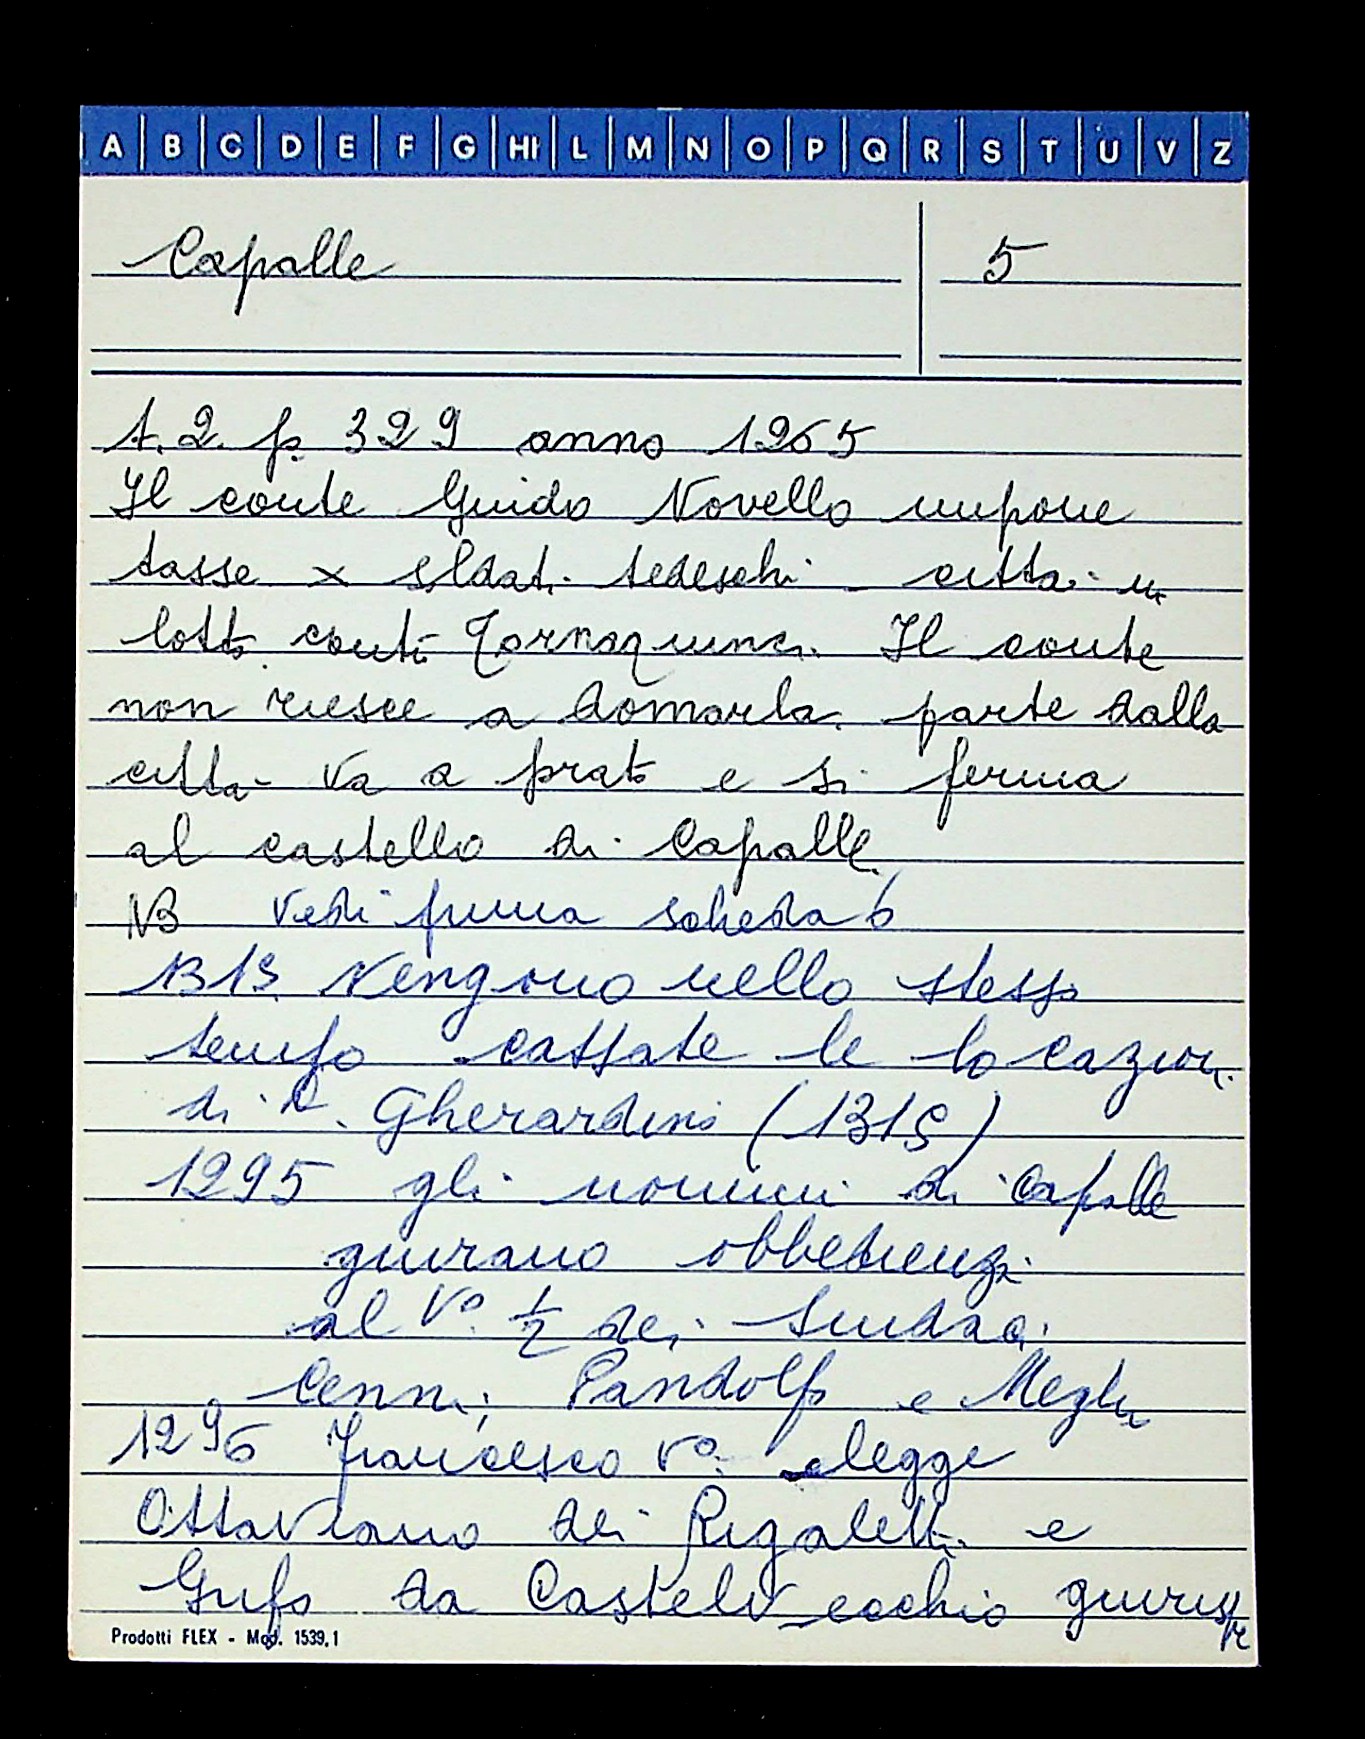 A B C D E F G HI L M N O P Q R S T U V Z
Capalle 5
t. 2. p. 329 anno 1265
Il conte Guido Novello impone
tasse x soldati tedeschi - città in
lotta conti Tornaquinci. Il conte
non riesce a domarla. parte dalla
città va a prato e si ferma
al castello di Capalle.
NB Vedi prima scheda 6
1315 Vengono nello stesso
tempo cassate le locazioni
di R. Gherardini (1315)
1295 gli uomini di Capalle
giurano obbedienza
al V° ½ dei Sindaci
Cenni; Pandolfo e Meglio
1296 Francesco V° elegge
Ottaviano dei Rigaletti e
Gufo da Castelvecchio giuristi
Prodotti FLEX - Mod. 1539.1